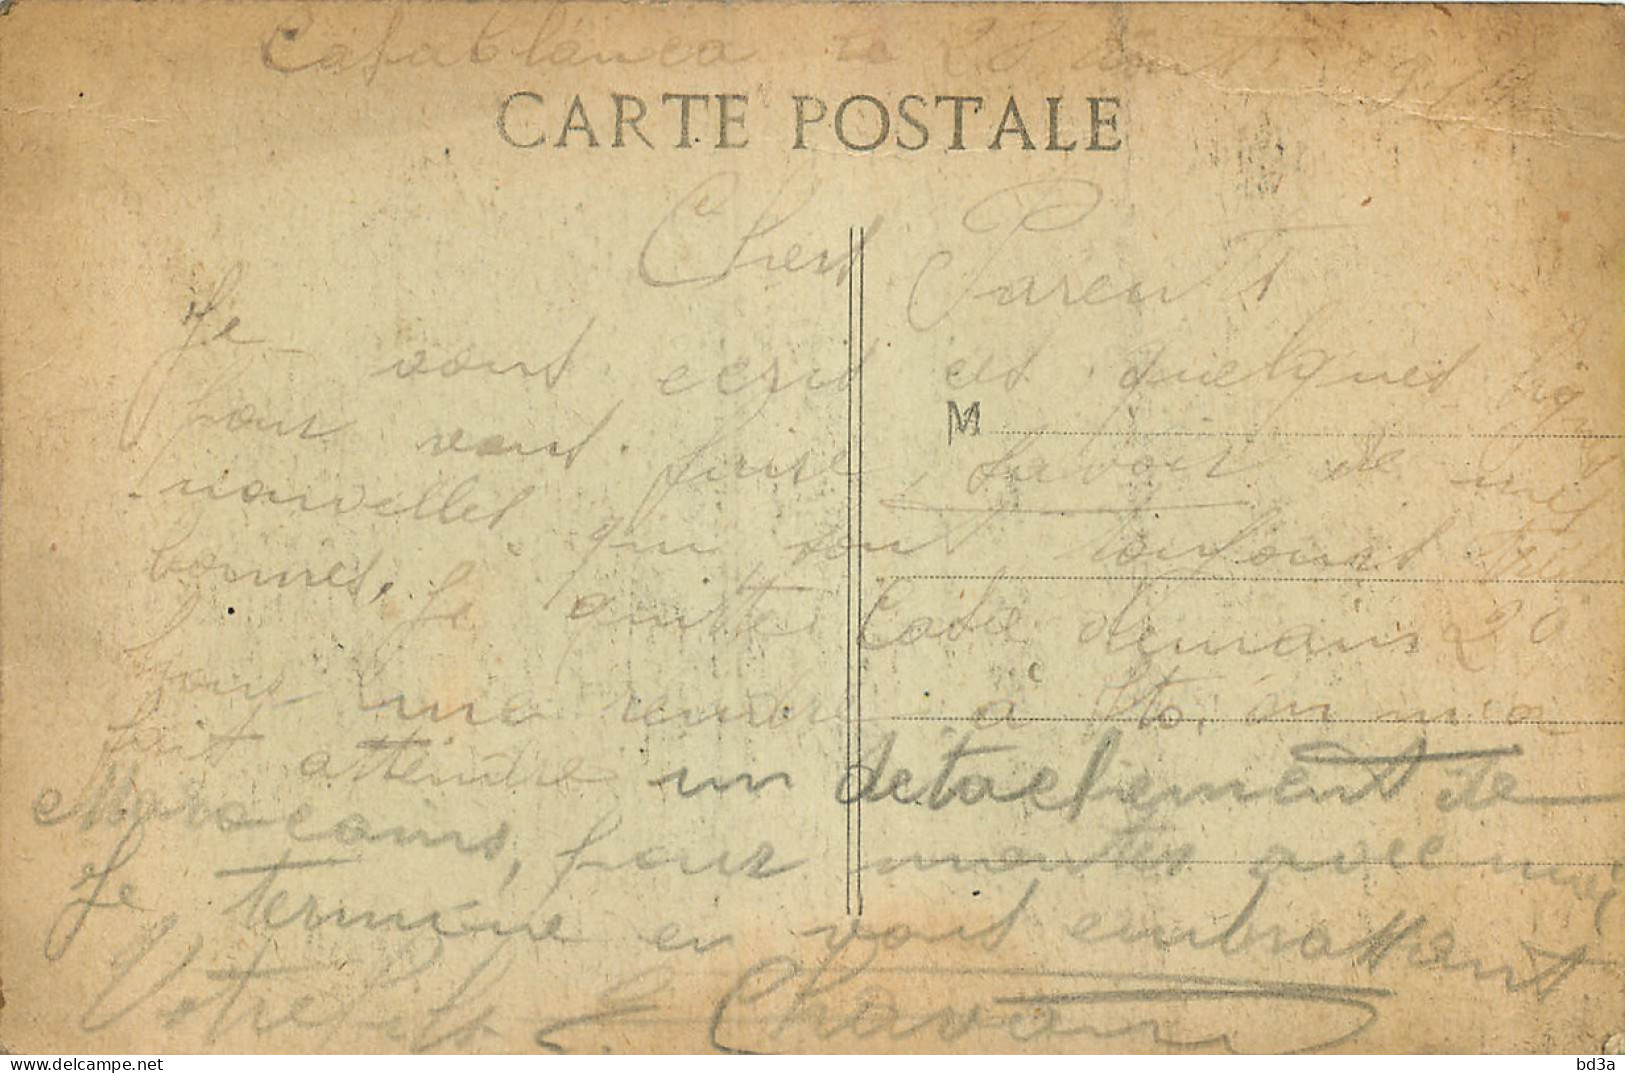 Casablanca le 28 aout 19
CARTE POSTALE
Chers Parents
Je vous ecris ces quelques lignes
M
pour vous faire savoir de mes
nouvelles qui sont toujours très
bonnes, Je quitte Casa demain 29
pour me rendre a on m'a
fait attendre un detachement de
Marocains, pour monter avec moi
Je termine en vous embrassant
Votre fils
bd3a